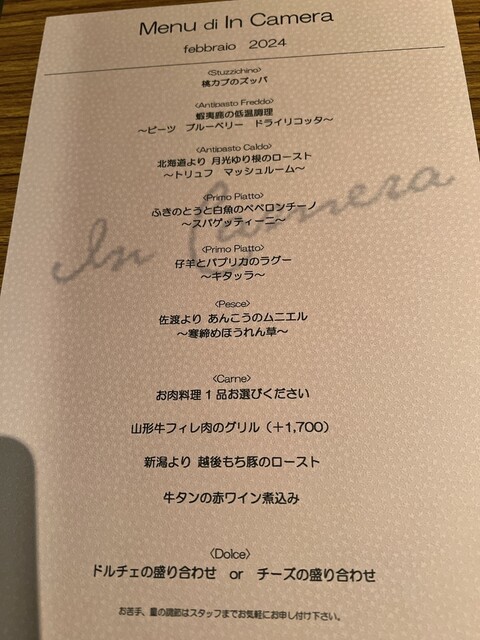 Menu di In Camera
febbraio 2024
<Stuzzichino>
桃カブのズッパ
<Antipasto Freddo>
蝦夷鹿の低温調理
～ビーツ ブルーベリー ドライリコッタ～
<Antipasto Caldo>
北海道より 月光ゆり根のロースト
～トリュフ マッシュルーム～
<Primo Piatto>
ふきのとうと白魚のペペロンチーノ
～スパゲッティーニ～
<Primo Piatto>
仔羊とパプリカのラグー
～キタッラ～
In Camera
<Pesce>
佐渡より あんこうのムニエル
～寒締めほうれん草～
<Carne>
お肉料理１品お選びください
山形牛フィレ肉のグリル（＋1,700）
新潟より 越後もち豚のロースト
牛タンの赤ワイン煮込み
<Dolce>
ドルチェの盛り合わせ or チーズの盛り合わせ
お苦手、量の調節はスタッフまでお気軽にお申し付け下さい。